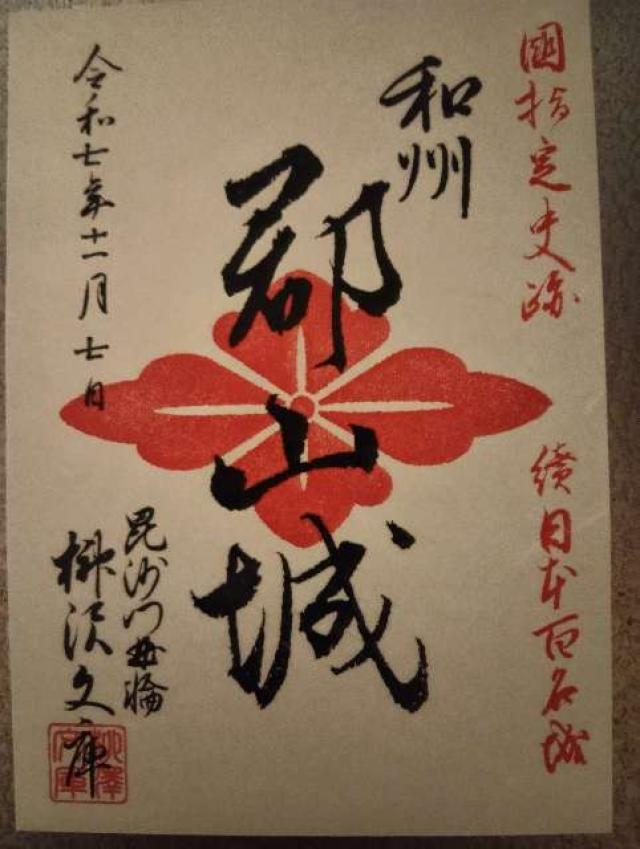 國指定史跡
續日本百名城
和州
郡山城
令和七年十一月七日
毘沙門曲輪
柳沢文庫
柳澤文庫